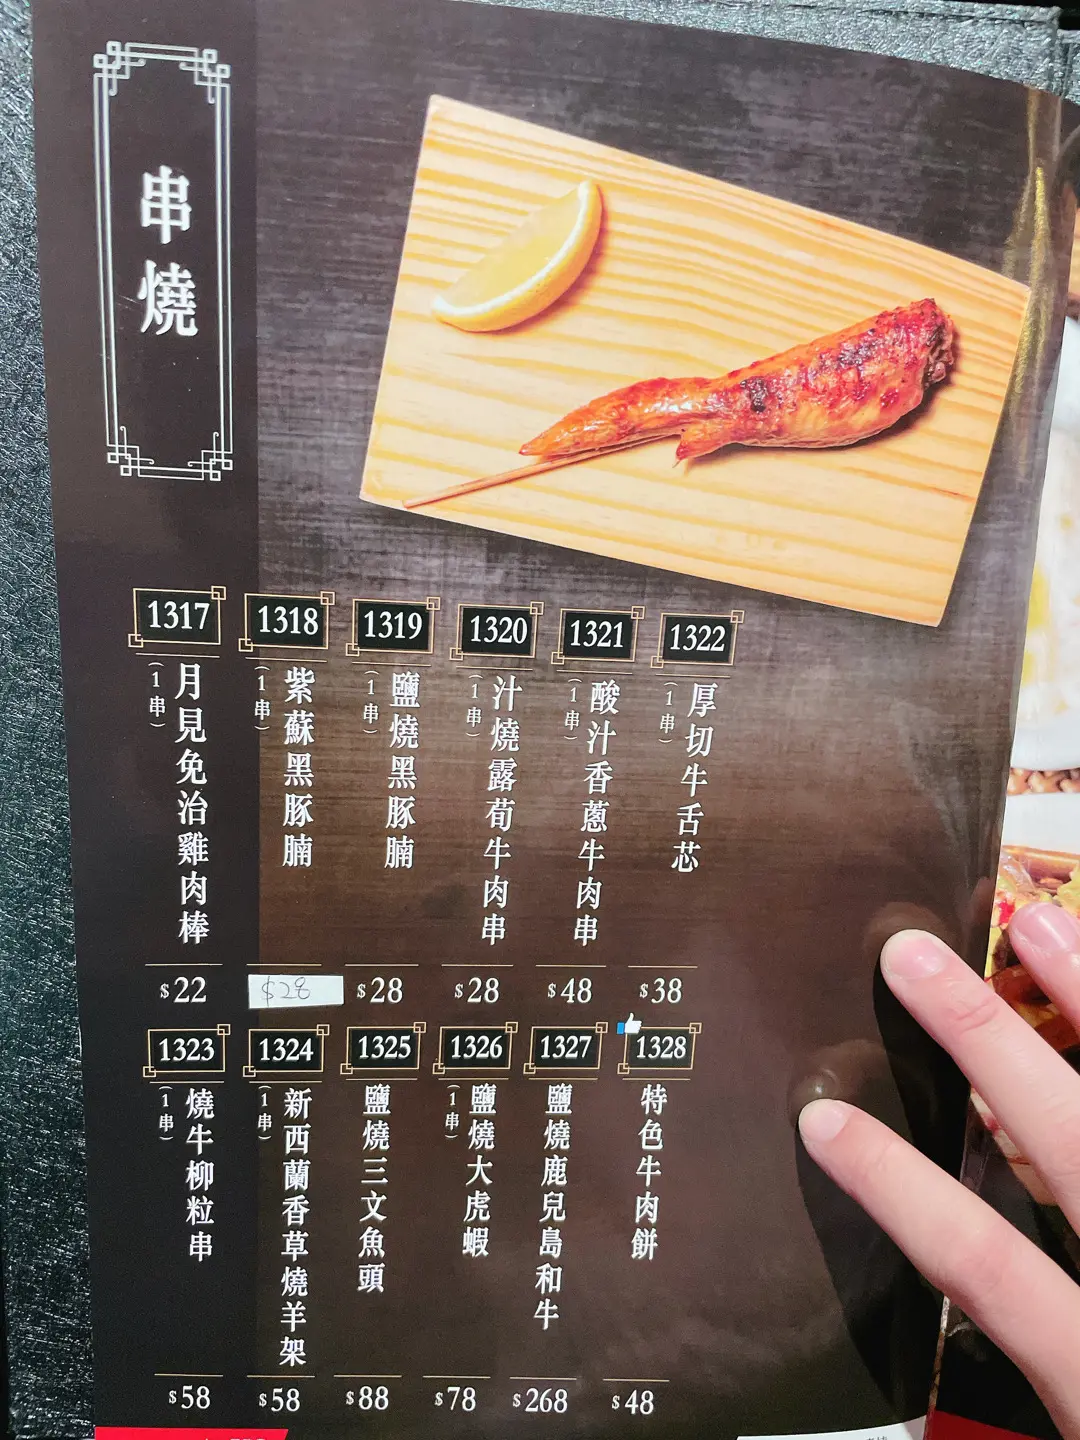 串燒
1317
月見免治雞肉棒
(1串)
$22
1318
紫蘇黑豚腩
(1串)
$28
1319
鹽燒黑豚腩
(1串)
$28
1320
汁燒露荀牛肉串
(1串)
$28
1321
酸汁香蔥牛肉串
(1串)
$48
1322
厚切牛舌芯
(1串)
$38
1323
燒牛柳粒串
(1串)
$58
1324
新西蘭香草燒羊架
(1串)
$58
1325
鹽燒三文魚頭
$88
1326
鹽燒大虎蝦
(1串)
$78
1327
鹽燒鹿兒島和牛
$268
1328
特色牛肉餅
$48